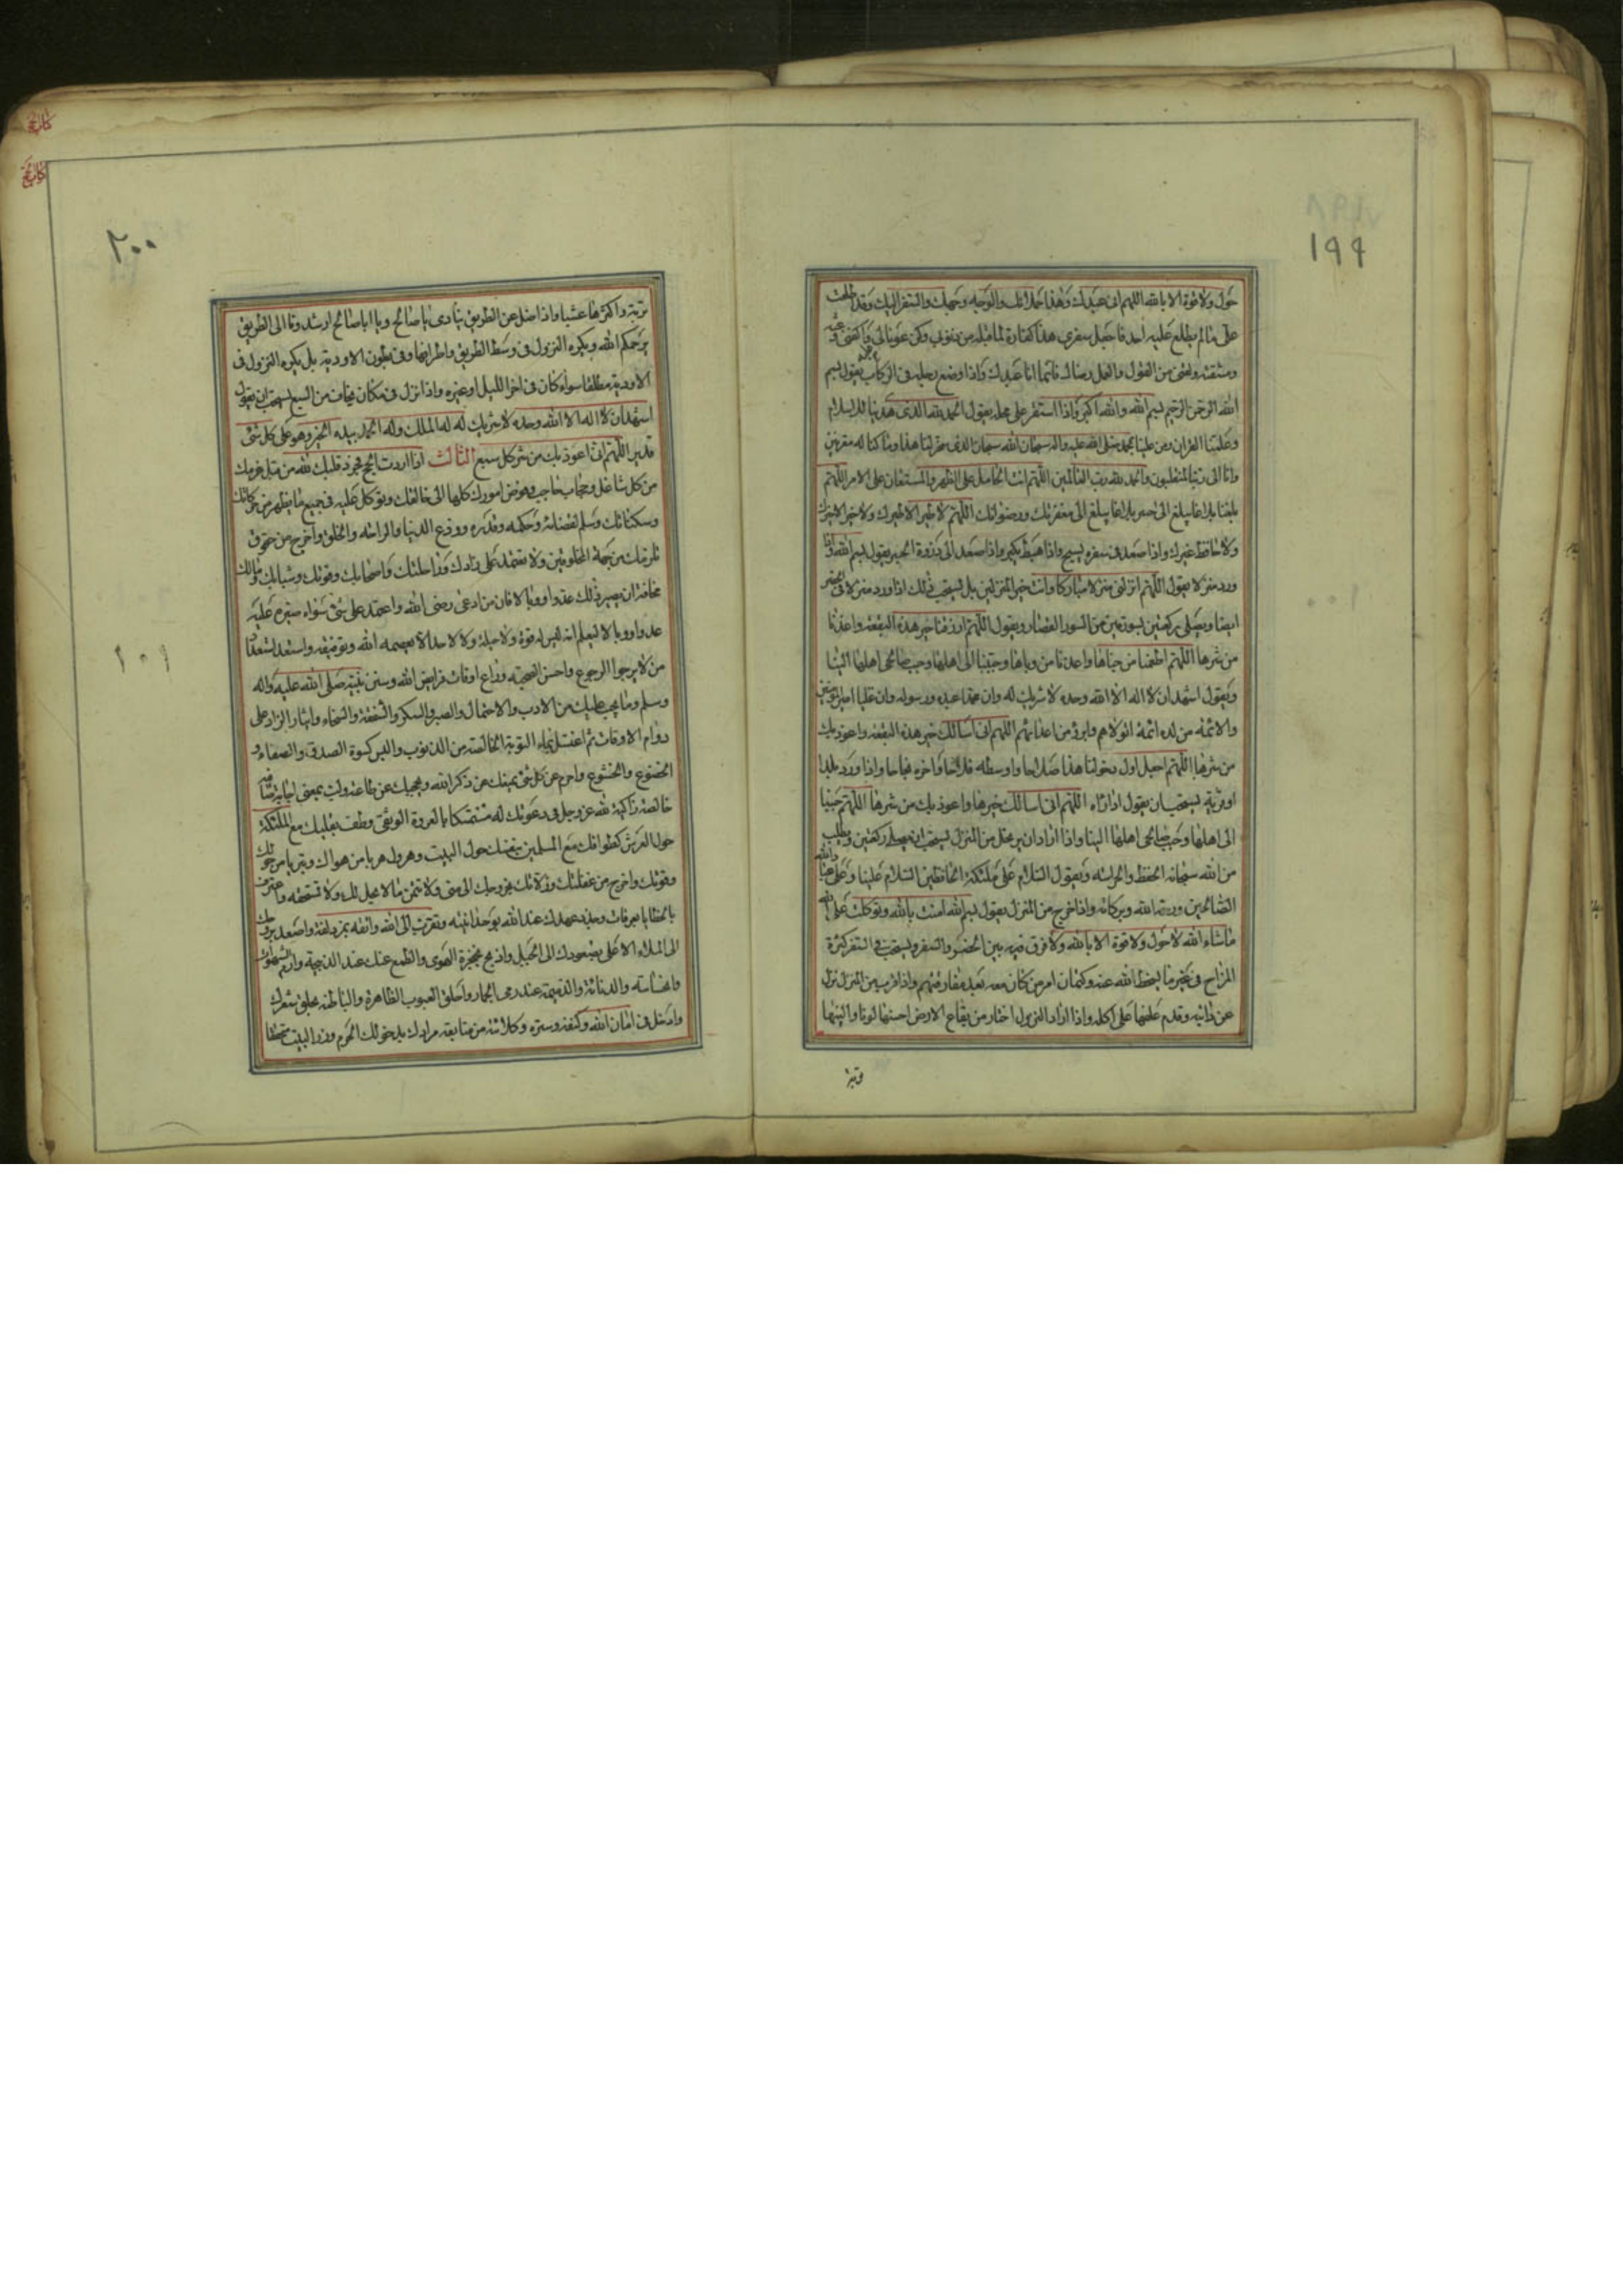 ١٩٩
حول ولا قوة الا بالله اللهم انى عبدك وهذا حملانك والوجه وجهك والسفر اليك وقد اطلعت
على ما لم يطلع عليه احد فاجعل سفرى هذا كفارة لما قبله من ذنوبى وكن عونا لى واكفنى وعثه
ومشقته ولقنى من القول والعمل رضاك فانما انا عبدك وبك ولك واذا وضع رجليه فى الركاب يقول بسم
الله الرحمن الرحيم بسم الله والله اكبر واذا استقر على محله يقول الحمد لله الذى هدينا للاسلام
وعلمنا القران ومن علينا بمحمد صلى الله عليه واله سبحان الله سبحان الذى سخر لنا هذا وما كنا له مقرنين
وانا الى ربنا لمنقلبون والحمد لله رب العالمين اللهم انت الحامل على الظهر والمستعان على الامر اللهم
بلغنا بلاغا يبلغ الى خير بلاغا يبلغ الى مغفرتك ورضوانك اللهم لا طير الا طيرك ولا خير الا خيرك
ولا حافظ غيرك واذا صعد فى سفره يسبح واذا هبط يكبر واذا صعد الى ذروة الجسر يقول بسم الله واذا
ورد منزلا يقول اللهم انزلنى منزلا مباركا وانت خير المنزلين بل يستحب ذلك اذا ورد منزلا فى الحضر
ايضا ويصلى ركعتين بسورتين من السور القصار ويقول اللهم ارزقنا خير هذه البقعة واعذنا
من شرها اللهم اطعمنا من جناها واعذنا من وباها وحببنا الى اهلها وحبب صالحى اهلها الينا
ويقول اشهد ان لا اله الا الله وحده لا شريك له وان محمدا عبده ورسوله وان عليا امير المؤمنين
والائمة من لده ائمة اتولاهم وابرؤ من اعدائهم اللهم انى اسالك خير هذه البقعة واعوذ بك
من شرها اللهم اجعل اول دخولنا هذا صلاحا واوسطه فلاحا واخره نجاحا واذا ورد بلدا
او قرية يستحب ان يقول اذا راه اللهم انى اسالك خيرها واعوذ بك من شرها اللهم حببنا
الى اهلها وحبب صالحى اهلها الينا واذا اراد ان يرتحل من المنزل يستحب ان يصلى ركعتين ويطلب
من الله سبحانه الحفظ والحراسة ويقول السلام على ملئكة الله الحافظين السلام علينا وعلى عباد الله
الصالحين ورحمة الله وبركاته واذا خرج من المنزل يقول بسم الله امنت بالله وتوكلت على الله
ما شاء الله لا حول ولا قوة الا بالله ولا فرق فيه بين الحضر والسفر ويستحب فى السفر كثرة
المزاح فى غير ما يسخط الله عنه وكتمان امر من كان معه بعد مفارقتهم واذا قرب من المنزل نزل
عن دابته وقدم علفها على اكله واذا اراد النزول اختار من بقاع الارض احسنها لونا والينها
٢٠٠
تربة واكثرها عشبا واذا ضل عن الطريق ينادى يا صالح ويا ابا صالح ارشدونا الى الطريق
يرحمكم الله ويكره النزول فى وسط الطريق واطرافها وفى بطون الاودية بل يكره النزول فى
الاودية مطلقا سواء كان فى اخر الليل او غيره واذا نزل فى مكان يخاف من السبع يستحب ان يقول
اشهد ان لا اله الا الله وحده لا شريك له له الملك وله الحمد بيده الخير وهو على كل شئ
قدير اللهم انى اعوذ بك من شر كل سبع الثالث اذا اردت الحج فجرد قلبك لله من قبل عزمك
من كل شاغل وحجاب حاجب وفوض امورك كلها الى خالقك وتوكل عليه فى جميع ما يظهر من حركاتك
وسكناتك وسلم لقضائه وحكمه وقدره وودع الدنيا والراحة والخلق واخرج من حقوق
تلزمك من جهة المخلوقين ولا تعتمد على زادك وراحلتك واصحابك وقوتك وشبابك ومالك
مخافة ان يصير ذلك عدوا ووبالا فان من ادعى رضى الله واعتمد على شئ سواه صيره عليه
عدوا ووبالا ليعلم انه ليس له قوة ولا حيلة ولا لاحد الا بعصمة الله وتوفيقه واستعد استعداد
من لا يرجوا الرجوع واحسن الصحبة وراع اوقات فرايض الله وسنن نبيه صلى الله عليه واله
وسلم وما يجب عليك من الادب والاحتمال والصبر والشكر والشفقة والسخاء وايثار الزاد على
دوام الاوقات ثم اغتسل بماء التوبة الخالصة من الذنوب والبس كسوة الصدق والصفاء و
الخضوع والخشوع واحرم عن كل شئ يمنعك عن ذكر الله ويحجبك عن طاعته ولب بمعنى اجابة صافية
خالصة زاكية لله عز وجل فى دعوتك له متمسكا بالعروة الوثقى وطف بقلبك مع الملئكة
حول العرش كطوافك مع المسلمين بنفسك حول البيت وهرول هربا من هواك وتبريا من حولك
وقوتك واخرج من غفلتك وزلاتك بخروجك الى منى ولا تتمن ما لا يحل لك ولا تستحقه واعترف
بالخطايا بعرفات وجدد عهدك عند الله بوحدانيته وتقرب الى الله واتقه بمزدلفة واصعد بروحك
الى الملاء الاعلى بصعودك الى الجبل واذبح حنجرة الهوى والطمع عنك عند الذبيحة وارم الشهوات
والخساسة والدنائة والذميمة عند رمى الجمار واحلق العيوب الظاهرة والباطنة بحلق شعرك
وادخل فى امان الله وكنفه وستره وكلائته من متابعة مرادك بدخولك الحرم وزر البيت متحققا